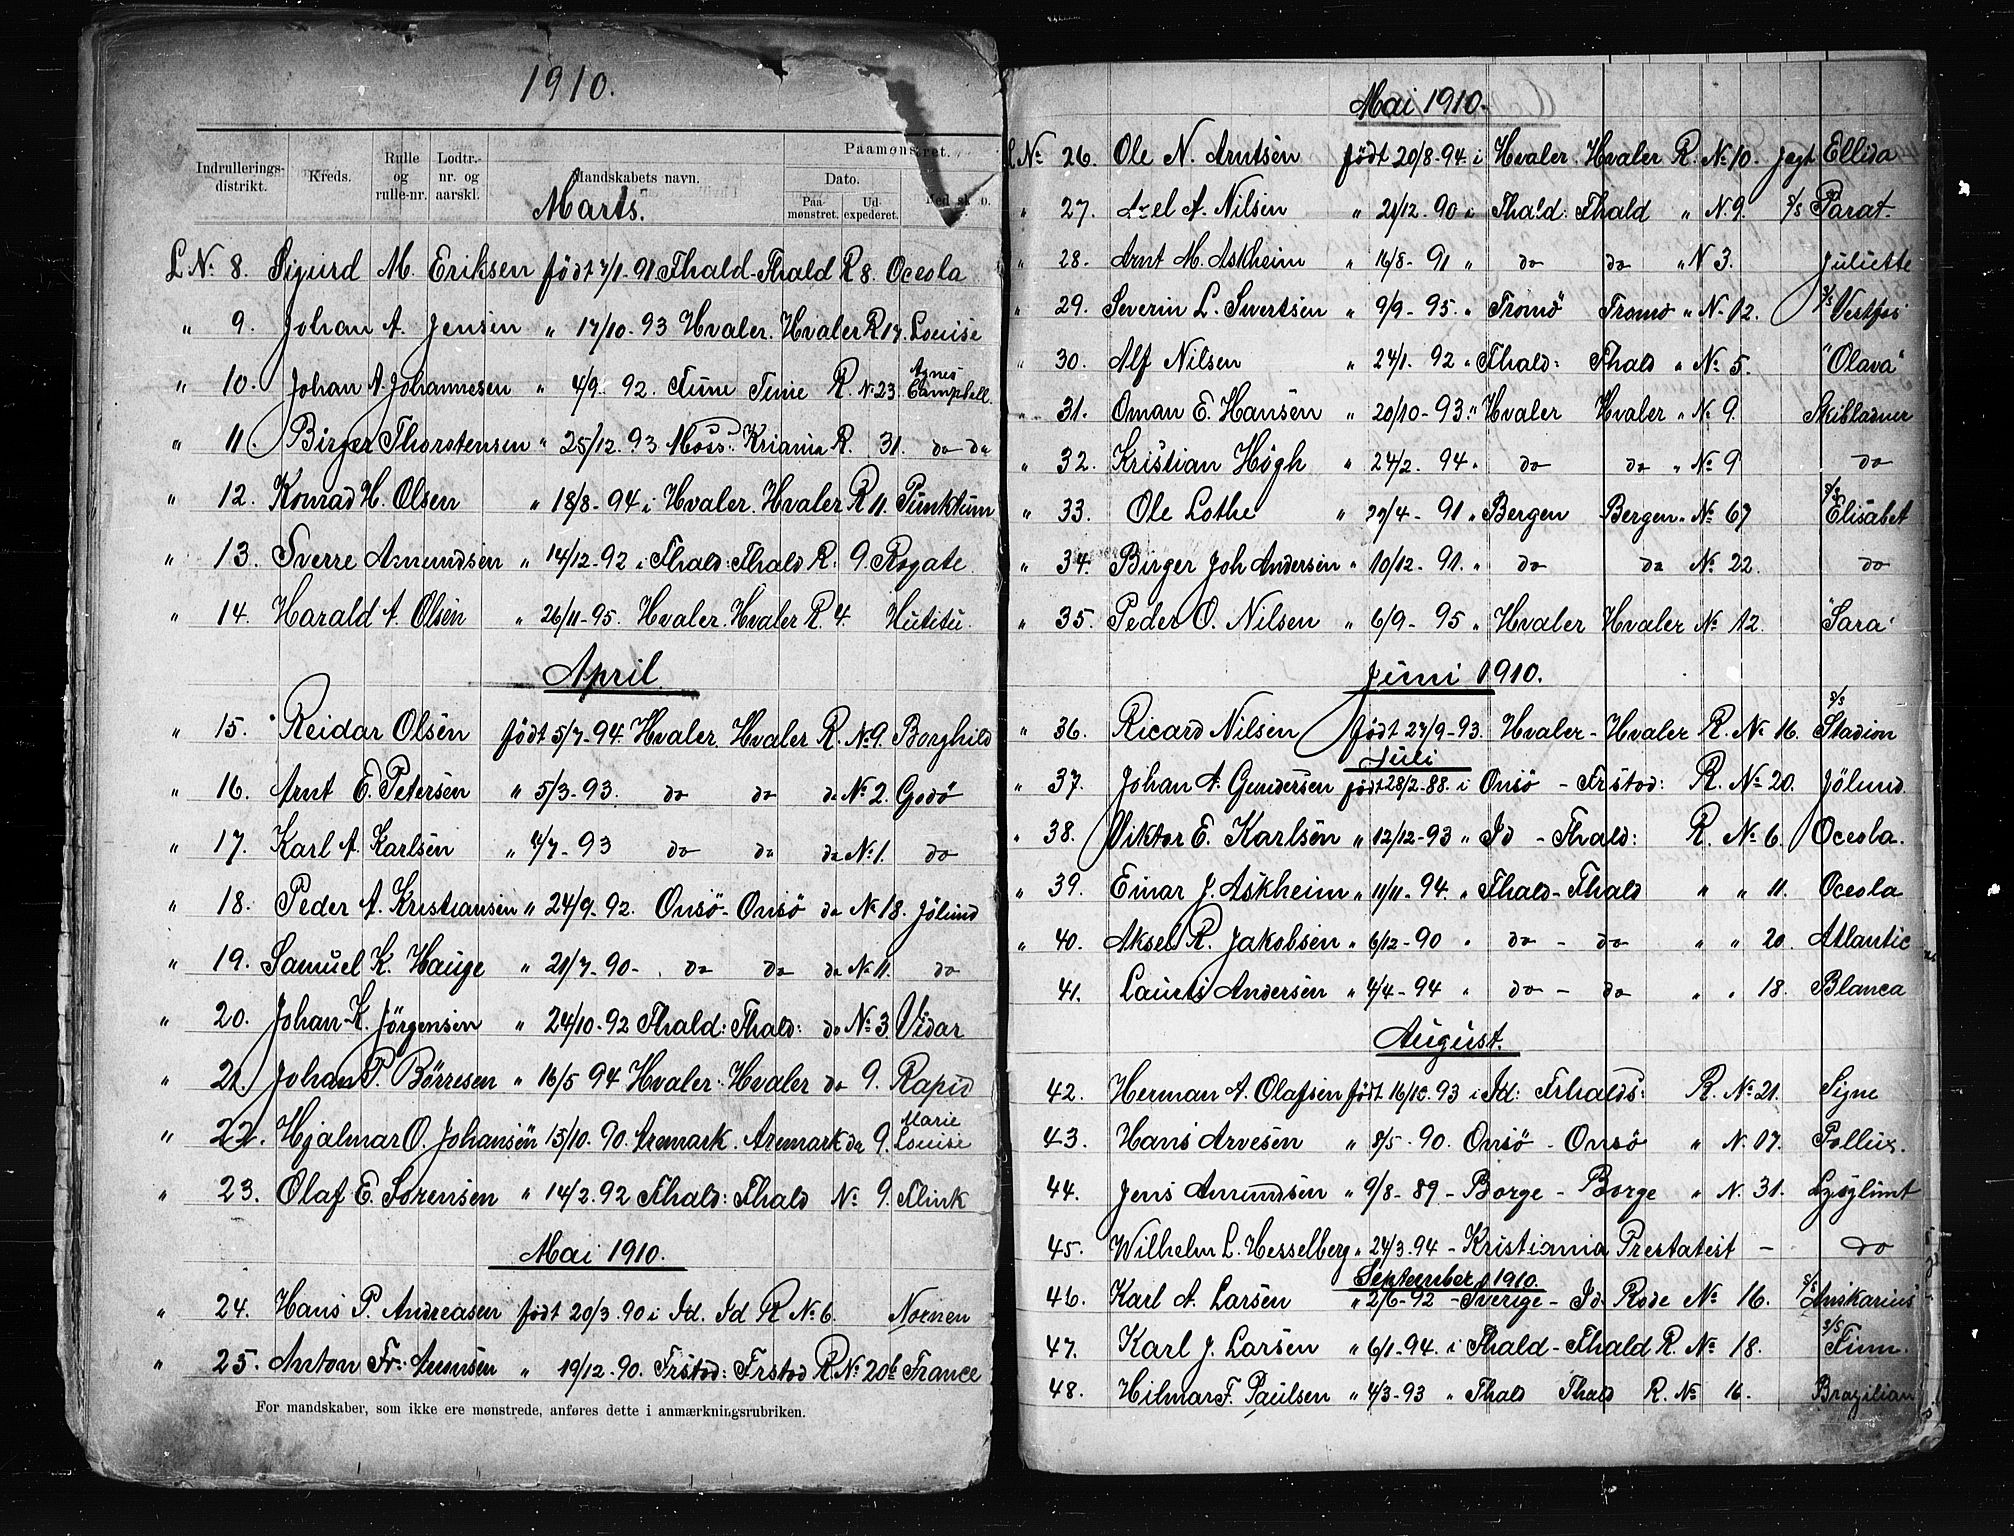 1910.
Indrullerings-distrikt. Kreds. Rulle og rulle-nr. Lodtr.-nr. og aarskl. Mandskabets navn. Paamønstret. Dato. Paa-mønstret. Ud-expederet. Med sk
Marts.
L № 8. Sigurd M. Eriksen født 7/1-91 Fhald-Fhald R 8. Oceola
" 9. Johan A. Jensen " 17/10-93 Hvaler. Hvaler R 17. Louise
" 10. Johan A. Johannesen " 4/9 92. Tune Tune R. № 23. Agnes Campbell.
" 11. Birger Thorstensen " 25/12. 93 Moss. Kriania R. 31. do do
" 12. Konrad H. Olsen " 18/8-94 i Hvaler. Hvaler R 11. Punktum
" 13. Sverre Asmundsen " 14/12-92 i Fhald: Fhald R. 9. Rogate
" 14. Harald A. Olsen " 26/11-95. Hvaler. Hvaler R. 4. Hutitu.
April
" 15. Reidar Olsen født 5/7-94. Hvaler. Hvaler R. № 9. Borghild
" 16. Arnt E. Petersen " 5/3-93. do do do № 2. Godø
" 17. Karl A. Karlsen " 4/7-93 do do do № 1. do
" 18. Peder A. Kristiansen " 24/9-92. Onsö-Onsö do № 18. Jölund
" 19. Samuel K. Hauge " 21/7-90- do do do № 11. do
" 20. Johan K. Jörgensen " 24/10-92 Fhald: Fhald: do № 3. Vidar
" 21. Johan P. Börresen " 16/5 94 Hvaler: Hvaler do 9. Rapid
" 22. Hjalmar O. Johansen 15/10-90. Aremark. Aremark do 9. Marie Louise
" 23. Olaf E. Sorensen " 14/2.92 Fhald: Fhald № 9. Flink
Mai 1910.
" 24. Hans P. Andreasen født 20/3.90 i Id. Id R № 6. Nornen
" 25. Anton Fr: Amunsen " 19/12-90. Frstad: Frstad R. № 20b France
For mandskaber, som ikke ere mønstrede, anføres dette i anmærkningsrubriken.
Mai 1910.
L № 26. Ole N. Arntsen født 20/8-94. i Hvaler. Hvaler R. № 10. Jagt Ellida
" 27. Axel A. Nilsen " 21/12-90 i Fhald: Fhald " N. 9. S/S Parat.
" 28. Arnt M. Askheim " 16/8-91 " do do " N 3. Juliette
" 29. Severin L. Sivertsen " 9/9-95. " Tromö Tromö " N. 12. S/S Vestfos
" 30. Alf Nilsen " 24/1. 92 " Fhald: Fhald " № 5. "Olava"
" 31. Oman E. Hansen " 20/10-93. " Hvaler Hvaler " № 9. Skibladner
" 32. Kristian Högh " 24/2. 94. " do do " № 9 do
" 33. Ole Lothe " 29/4-91 " Bergen Bergen " № 67 S/S Elisabet
" 34. Birger Joh Andersen " 10/12-91. " do do № 22. do
" 35. Peder O. Nilsen " 6/9-95 " Hvaler Hvaler № 12. "Sara"
Juni 1910.
" 36. Ricard Nilsen født 27/9-93. Hvaler-Hvaler R. № 16. S/S Stadion
Juli
" 37. Johan A. Gundersen født 28/2-88. i Onsö - Frstad: R. № 20. Jölund.
" 38. Viktor E. Karlsen " 12/12-93 " Id - Fhald: R. № 6. Oceola.
" 39. Einar J. Askheim " 11/11-94. " Fhald-Fhald " " 11. Oceola
" 40. Aksel R. Jakobsen " 6/12-90 " do - do " " 20. Atlantic
41. Laurits Andersen " 4/4-94 " do - do " " 18. Blanca
August.
42. Herman A. Olafsen født 16/10.93 i Id: Frhalds: R. № 21. Signe
43. Hans Arvesen " 8/5-90. Onsö-Onsö " N. 07. Pollux.
44. Jens Amundsen " 9/8-89-Borge-Borge " N. 31. Lysglimt
45. Wilhelm L. Hesselberg " 24/3.94-Kristiania Prestateist - do
September 1910.
46. Karl A. Larsen " 2/6-92-Sverige-Id Rode № 16. S/S Anskarius
47. Karl J. Larsen " 6/1-94. i Fhald-Fhald R. № 18. S/S Finn.
48. Hilmar F. Paulsen " 4/3-93 " Fhald Fhald R. № 16. Brazilian